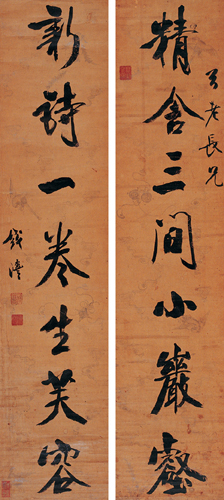 老長兄
精舍三間小巖壑
新詩一卷生芙容
錢灃